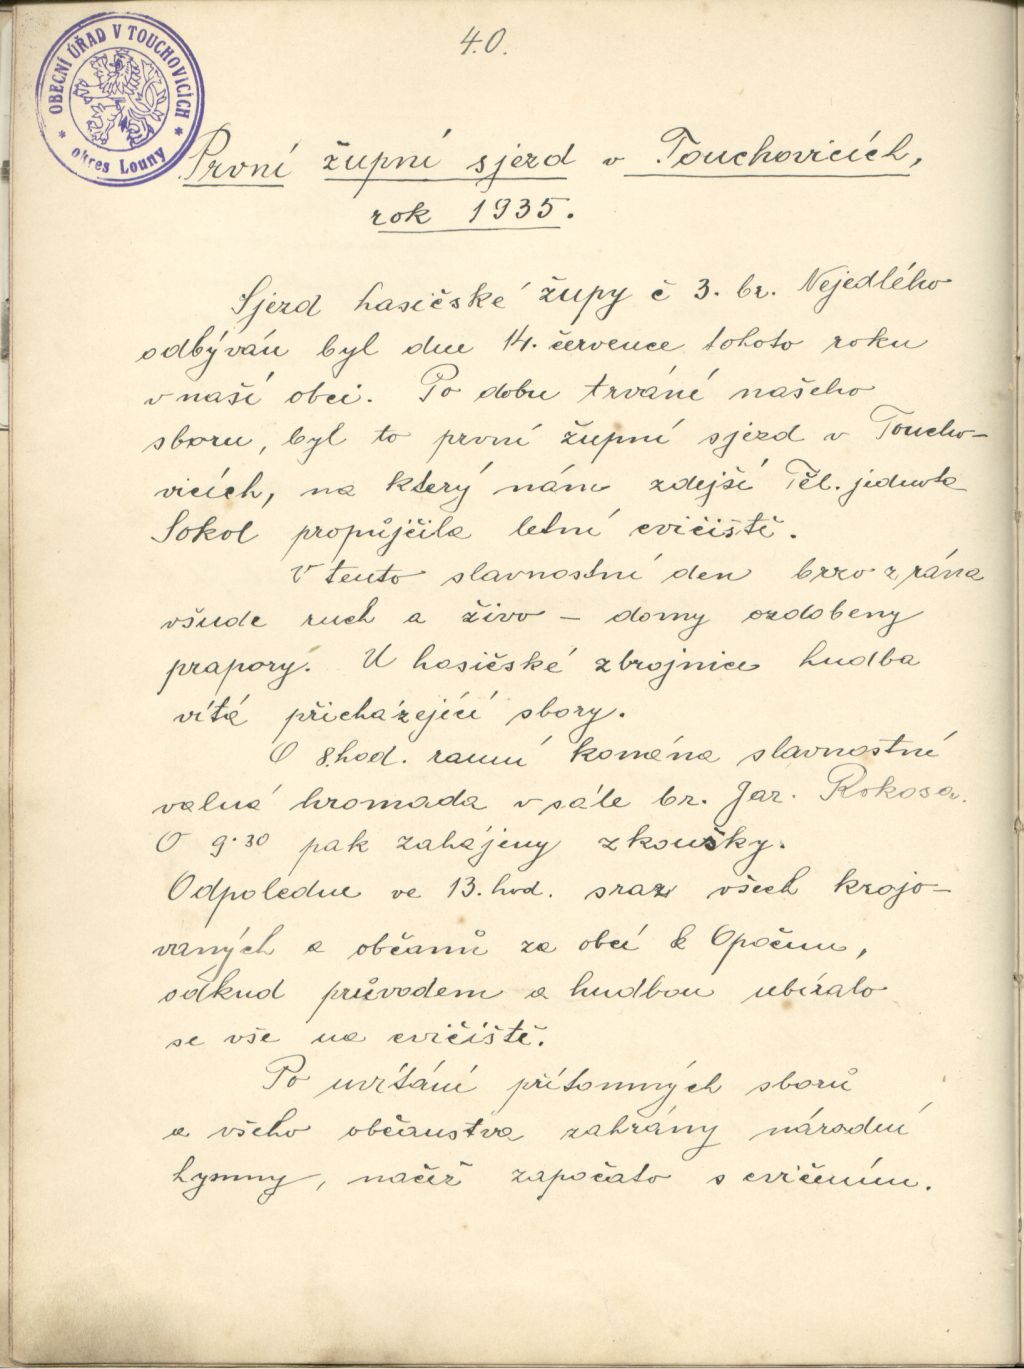 40.
OBECNÍ ÚŘAD V TOUCHOVICÍCH
* okres Louny *
První župní sjezd v Touchovicích,
rok 1935.
Sjezd hasičské župy č 3. br. Nejedlého
odbýván byl dne 14. července tohoto roku
v naší obci. Po dobu trvání našeho
sboru, byl to první župní sjezd v Toucho-
vicích, na který nám zdejší Těl. jednota
Sokol propůjčila letní cvičiště.
V tento slavnostní den brzo z rána
všude ruch a živo – domy ozdobeny
prapory. U hasičské zbrojnice hudba
vítá přicházející sbory.
O 8. hod. ranní konána slavnostní
valná hromada v sále br. Jar. Rokosa.
O 9.30 pak zahájeny zkoušky.
Odpoledne ve 13. hod. sraz všech krojo-
vaných a občanů za obcí k Opočnu,
odkud průvodem a hudbou ubíralo
se vše na cvičiště.
Po uvítání přítomných sborů
a všeho občanstva zahrány národní
hymny, načež započato s cvičením.